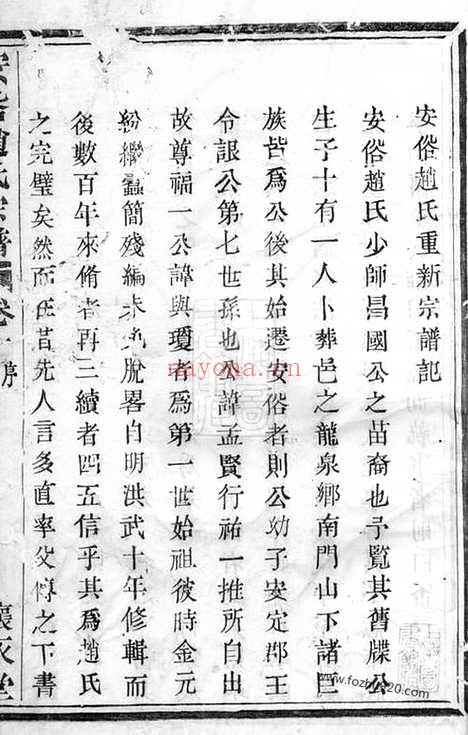 安俗趙氏重新宗譜記
安俗趙氏少師昌國公之苗裔也予覧其舊牒公
生子十有一人卜葬邑之龍泉鄉南門山下諸巨
族皆爲公後其始遷安俗者則公幼子安定郡王
令詪公第七世孫也公諱孟賢行祐一推所自出
故尊福一公諱與瓊者爲第一世始祖彼時金元
紛繼蠧簡残編未脫畧自明洪武十年修輯而
後數百年來脩者再三續者四五信乎其爲趙氏
之完璧矣然而在昔先人言多直率父傳之下書
趙氏宗譜 卷一 序
nayona.cn
www.fozhu920.com